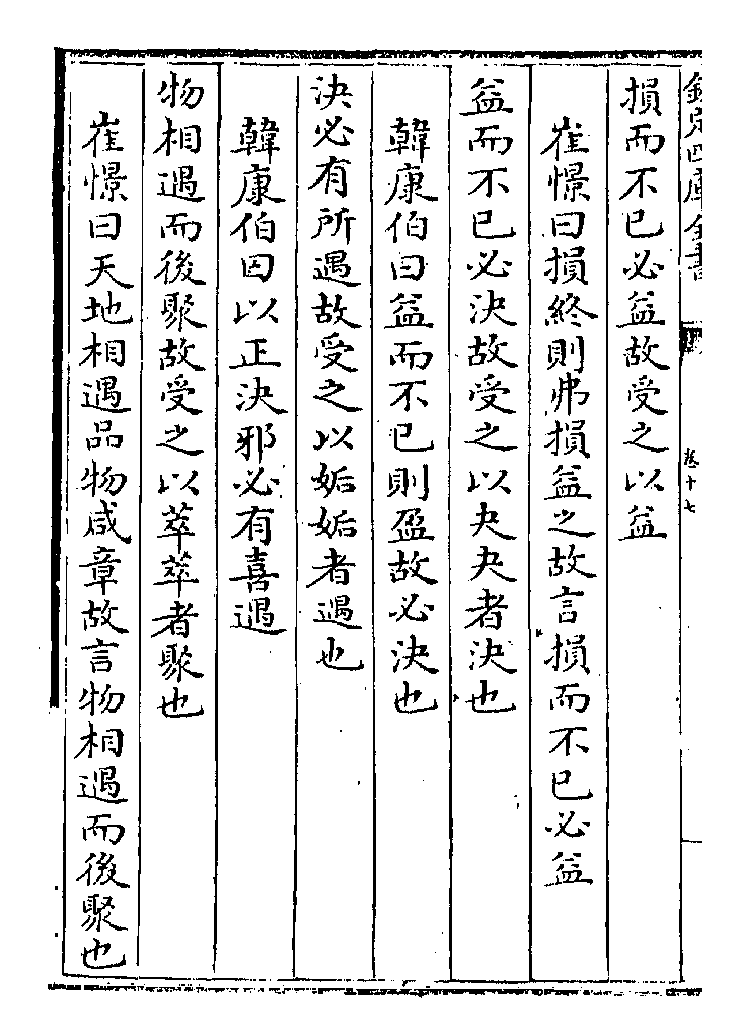 欽定四庫全書
卷十七
損而不已必益故受之以益
崔憬曰損終則弗損益之故言損而不已必益
益而不已必決故受之以夬夬者決也
韓康伯曰益而不已則盈故必決也
決必有所遇故受之以姤姤者遇也
韓康伯曰以正決邪必有喜遇
物相遇而後聚故受之以萃萃者聚也
崔憬曰天地相遇品物咸章故言物相遇而後聚也